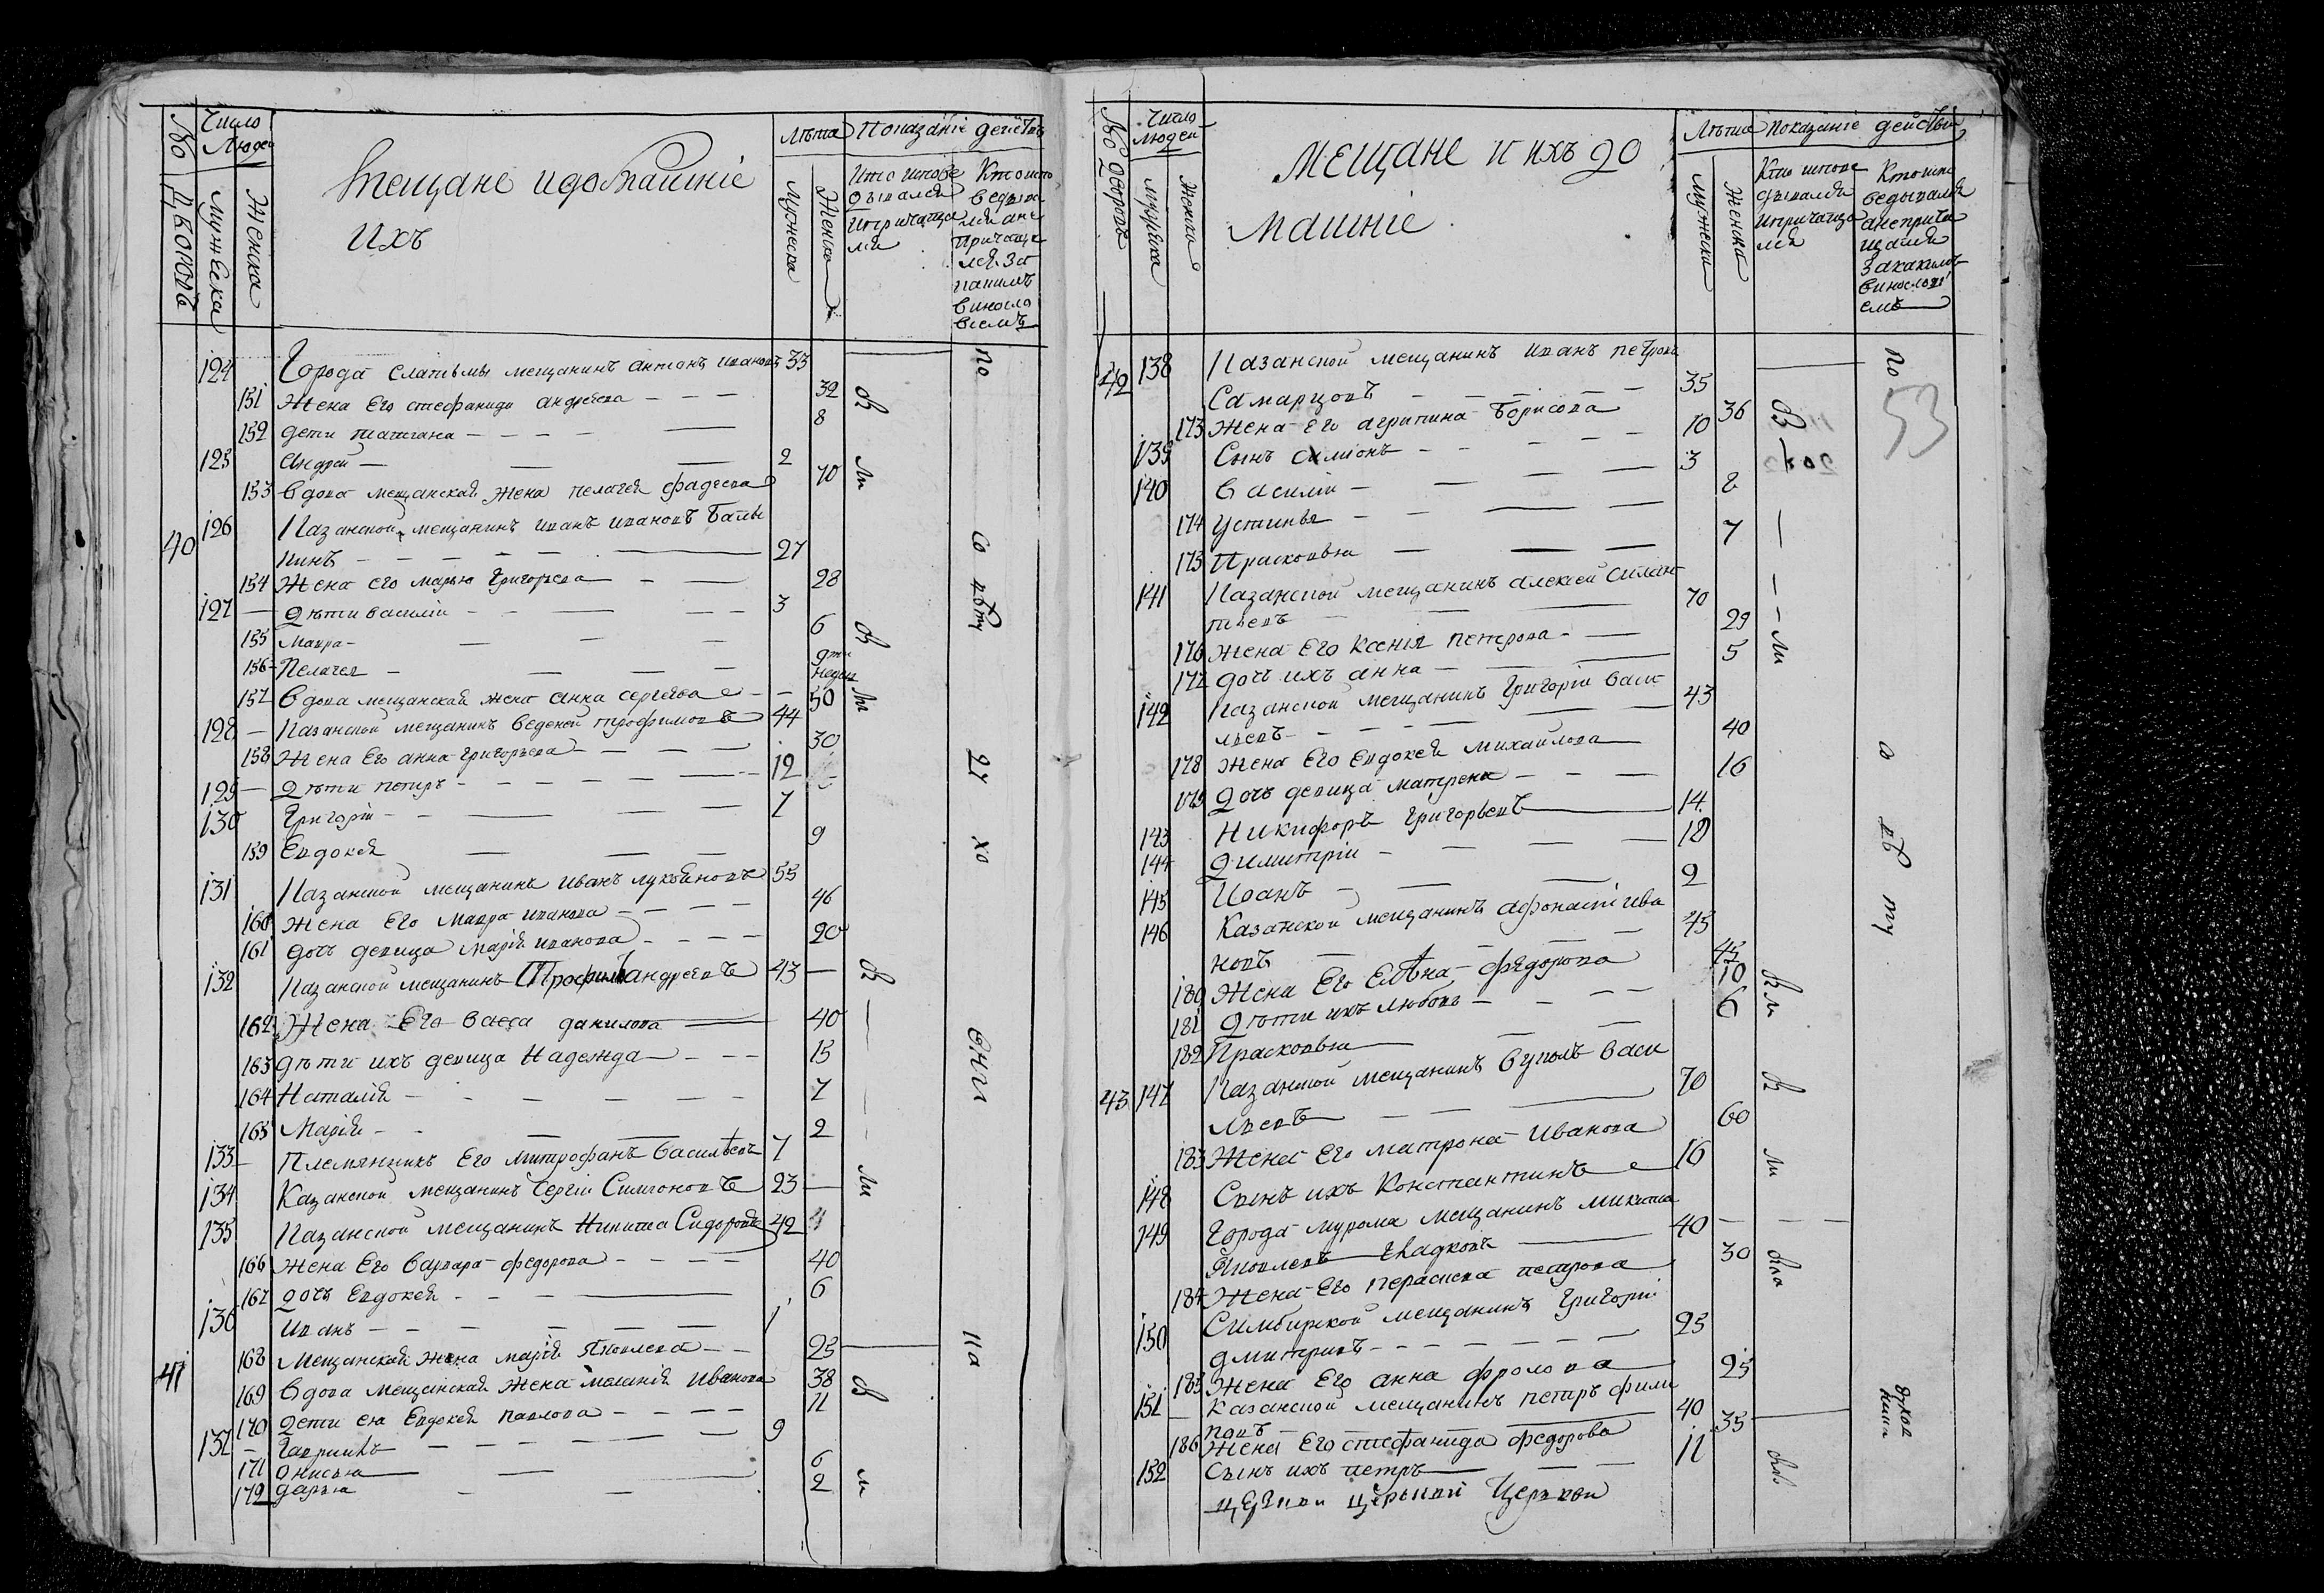 No Дворовъ
Число Людей
Мужеска
Женска
Мещане и домашніе
ихъ
Лѣта
Мужеска
Женска
Показаніе действъ
Кто испове
дывался
и причаща
лся
Кто испо
ведыва
лся а не
причаща
лся за
какимъ
винosло
віемъ
124 Города Слатьмы мещанинъ Антонъ Ивановъ 33
151 Жена Его стефанида андреева — — — 32
152 дети татиана — — — — 8
125 Андрей — — — 2
153 вдова мещанская жена пелагея фадеева 70
40 126 Казанской мещанинъ иванъ ивановъ
кинъ — — — — — 27
154 Жена его марья Григорьева — — 28
127 — Дѣти василій — — — — 3
155 Мавра — — — — 6
156 Пелагея — — — — недел
157 вдова мещанская жена Анна сергѣева — — 50
128 — Казанской мещанинъ веденей трофимовъ 44
158 Жена Его анна григорьева — — — — 30
129 — Дѣти петръ — — — — — 12
130 Григорій — — — — — 7
159 Евдокея — — — 9
131 Казанской мещанинъ Иванъ лукояновъ 55
160 Жена Его Мавра иванова — — — — 46
161 дочь девица марія иванова — — — — 20
132 Казанской мещанинъ Трофимъ андреевъ 43 —
162 Жена Его Васса данилова — 40
163 дѣти ихъ девица Надежда — — — 15
164 Наталія — — — — — — 7
165 Марія — — — — 2
133 — Племянникъ Его митрофанъ васильевъ 7
134 Казанской мещанинъ Сергій Симионовъ 23 —
135 Казанской мещанинъ Никита Сидоровъ 42
166 Жена Его варвара федорова — — — — 40
167 дочь Евдокея — — — 6
136 Иванъ — — — — — — 1
41 168 Мещанская жена марія Яковлева — — 25
169 вдова мещанская жена меланія Иванова 38
170 дети ея Евдокея павлова — — — — 11
137 — Гаврилъ — — — — — — — 9
171 Анисья — — — 6
172 дарья — — 2
В ли
В ли
В — — — ли
В ли
по со ству
духо вни ка
No Дворовъ
Число
людей
Мужеска
Женска
Мещане и ихъ до
машніе
Лѣта
Мужеска
Женска
Показаніе действъ
Кто испове
дывался
и причаща
лся
Кто испо
ведывался
а не прича
щался
За какимъ
винослові
емъ
53
42 138 Казанской мещанинъ иванъ петровъ
Самарцовъ — — — — — 35
173 Жена Его агрипина Борисова 36
139 Сынъ симіонъ — — — — — 10
140 Василій — — — — — 3
174 Устинья — — — — 8
175 Прасковья — — — 7
141 Казанской мещанинъ алексей силан
тьевъ — — — 70
176 жена Его Ксенія петрова — — 29
177 дочь ихъ анна — — — 5
142 Казанской мещанинъ Григорій васи
льевъ — — — — — — 43
178 Жена Его Евдокея михаилова 40
179 Дочь девица матрена — — — 16
143 Никифоръ Григорьевъ 14
144 Димитріи — — — — 12
145 Иоанъ — — — 2
146 Казанской мещанинъ афонасіи ива
новъ — — — — 45
180 Жена Его Елѣна федорова 45
181 Дѣти ихъ любовь — — — — 10
182 Прасковья — — — 6
43 147 Казанской мещанинъ Вуколъ васи
льевъ — — — 70
183 Жена Его матрона Иванова 60
148 Сынъ ихъ Константинъ 16
149 Города мурома мещанинъ микита
Яковлевъ Гладковъ — 40
184 Жена Его параскева петрова 30
150 Симбирской мещанинъ Григорій
дмитривъ — — — — — — 25
185 Жена Его анна фролова 25
151 Казанской мещанинъ петръ фили
повъ — — 40
186 Жена Его стефанида федорова 35
152 Сынъ ихъ петръ — — — 11
Церкви
В — — — — ли
В ли
В ли
по